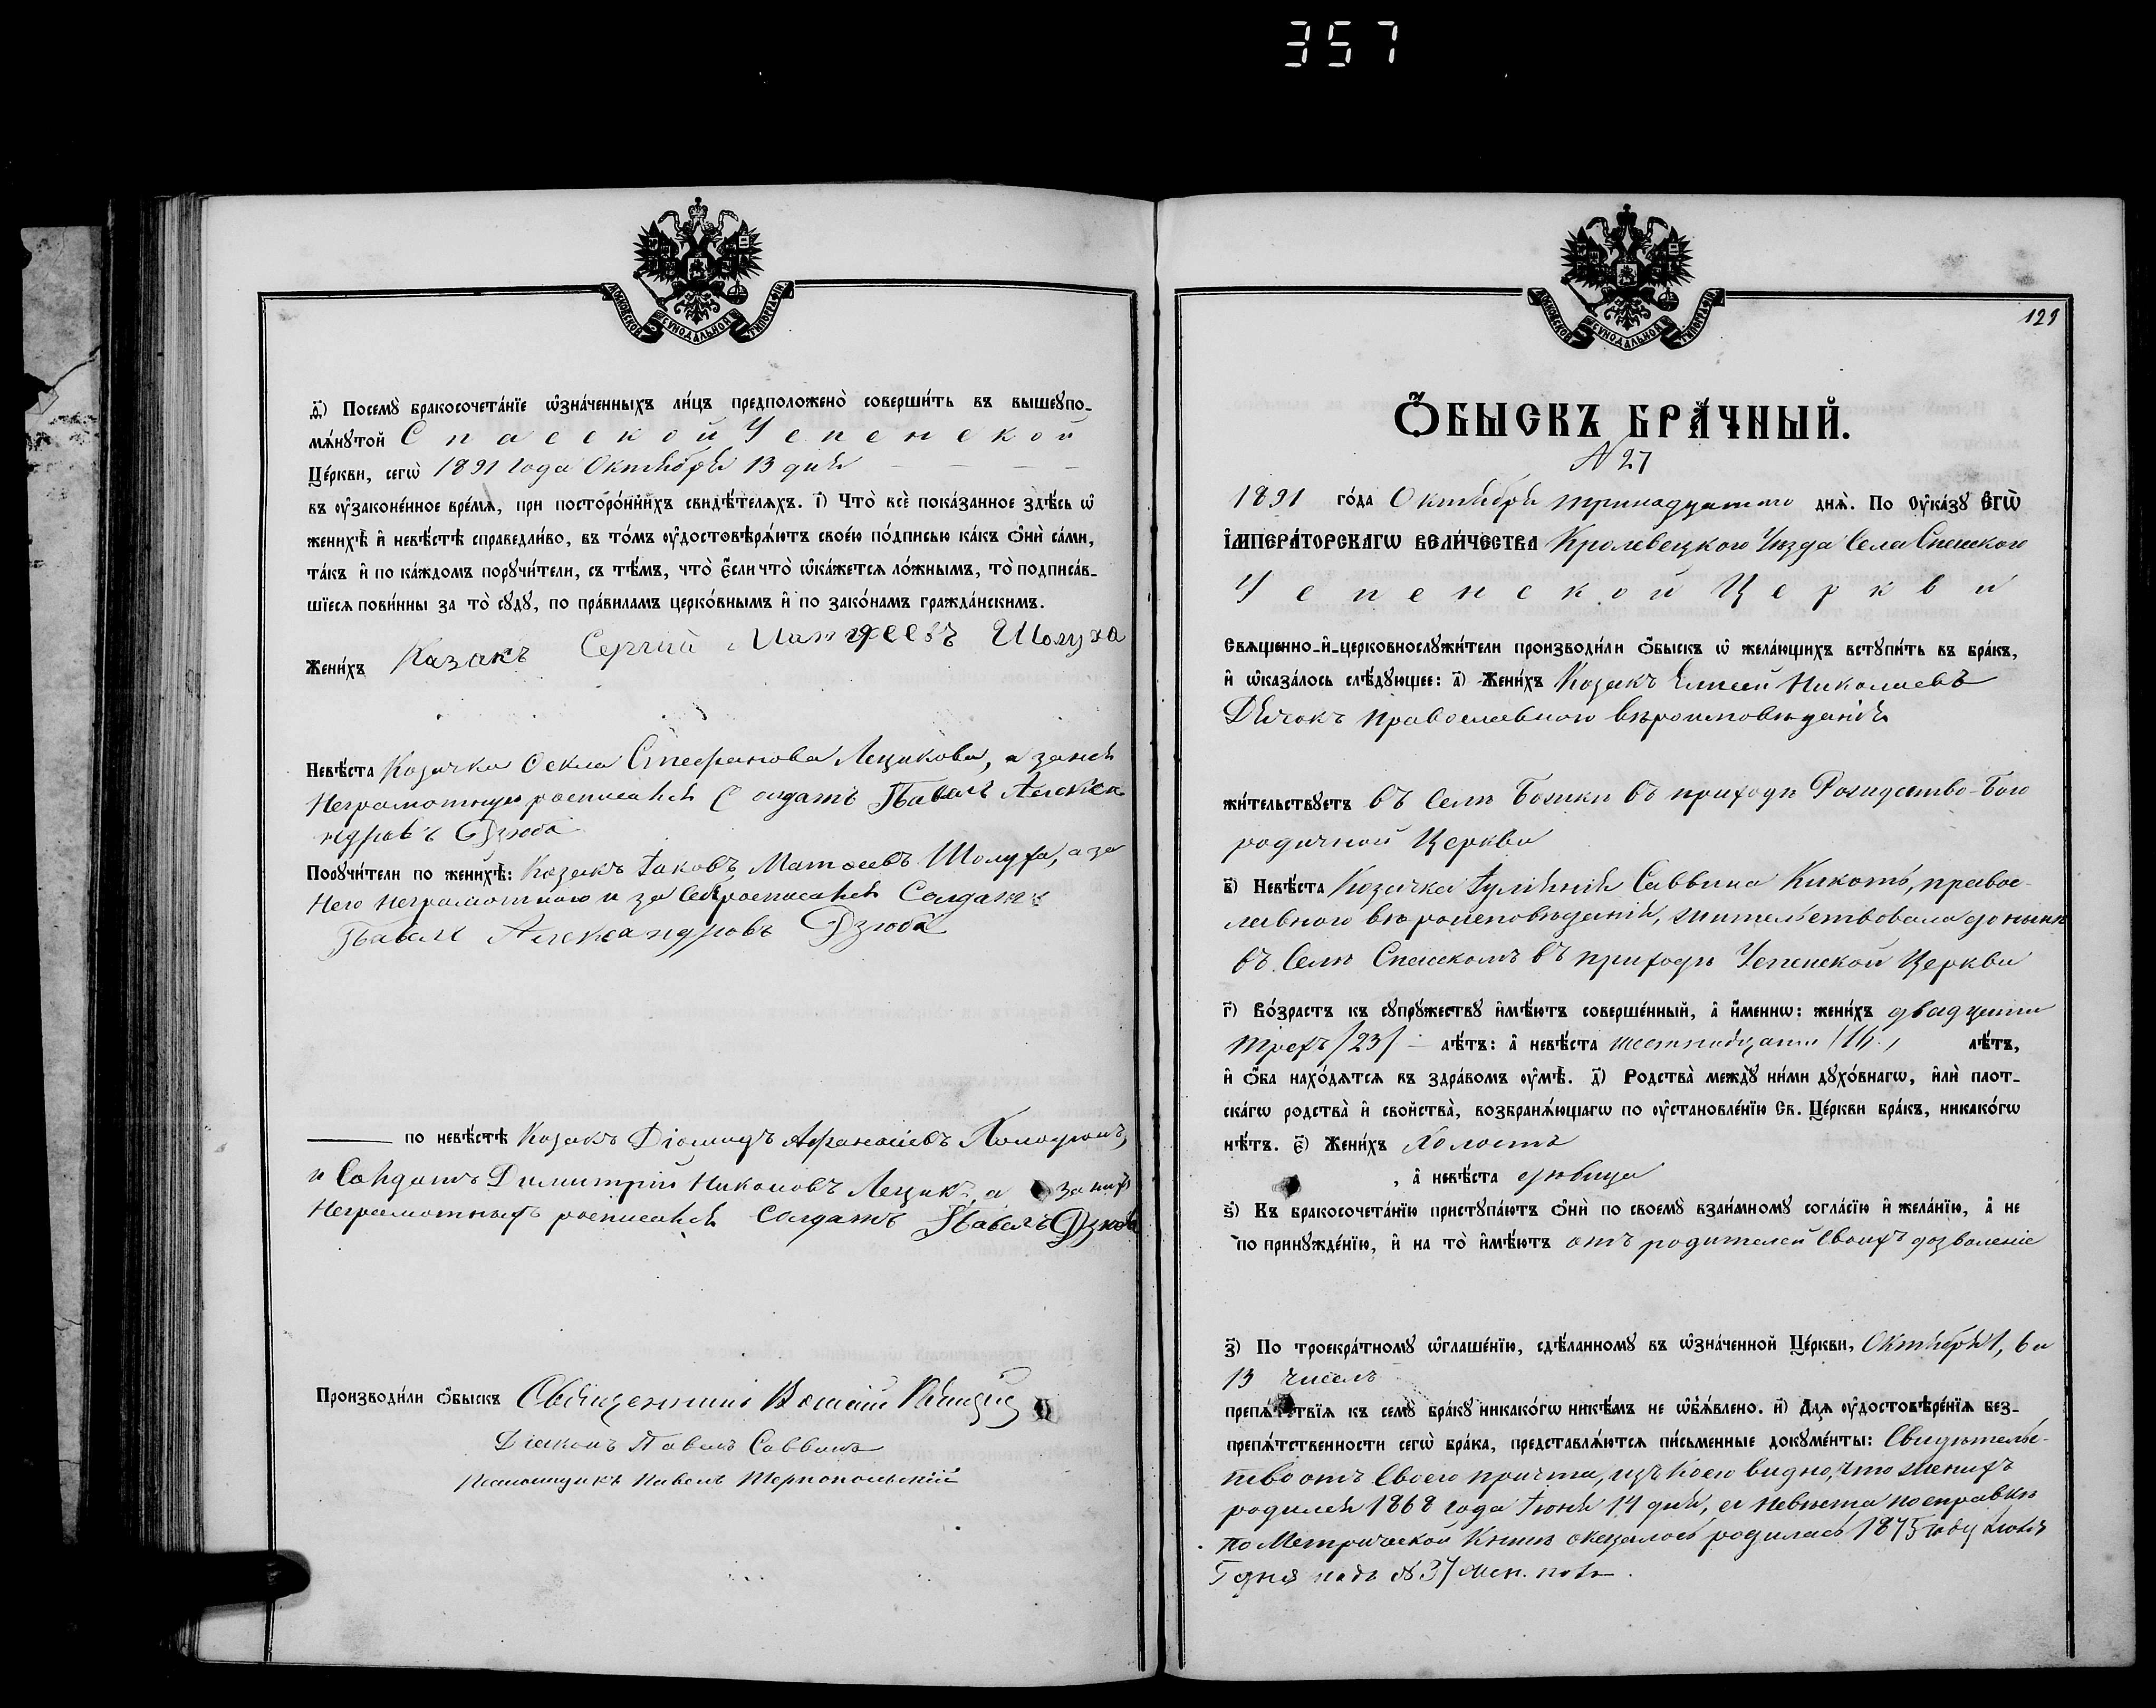 357
МОСКОВСКОЙ СѴНОДАЛЬНОЙ ТИПОГРАФІИ
д҃) Посемꙋ̀ бракосочета́нїе ѡ҆зна́ченныхъ ли́цъ предположено̀ соверши́ть въ вышеꙋпо-
мѧ́нꙋтой Спасской Успенской
Це́ркви, сегѡ̀ 1891 года Октября 13 дня
въ ᲂу҆законе́нное вре́мѧ, при посторо́ннихъ свидѣ́телѧхъ. і҃) Что̀ всѐ пока́занное здѣ́сь ѡ҆
женихѣ̀ и҆ невѣ́стѣ справедли́во, въ то́мъ ᲂу҆достовѣрѧ́ютъ своею по́дписью ка́къ ѻ҆нѝ са́ми,
та́къ и҆ по ка́ждомъ порꙋчи́тели, съ тѣ́мъ, что̀ є҆́сли что̀ ѡ҆ка́жетсѧ ло́жнымъ, то̀ подписа́в-
шїесѧ пови́нны за то̀ сꙋдꙋ̀, по пра́виламъ церко́внымъ и҆ по зако́намъ гражда́нскимъ.
Жени́хъ Казакъ Сергій Матѳеевъ Шолуха
Невѣ́ста Козачка Ѳекла Стефанова Лещикова, а за нея
Неграмотную росписался Солдатъ Павелъ Алекса
ндровъ Дзюба
Порꙋчи́тели по женихѣ̀: Козакъ Іаковъ Матѳеевъ Шолуха, а за
Него неграмотного и за себя росписался Солдатъ
Павелъ Александровъ Дзюба
по невѣ́стѣ Козакъ Діомидъ Афанасіевъ
и Солдатъ Димитрій Никоновъ Лещикъ, а за нихъ
Неграмотныхъ росписался солдатъ Павелъ Дзюба
Производи́ли ѻ҆́быскъ Священникъ
Діаконъ Павелъ Саввичъ
Псаломщикъ Павелъ Тернопольскій
МОСКОВСКОЙ СѴНОДАЛЬНОЙ ТИПОГРАФІИ
129
Ѻ҆́БЫСКЪ БРА́ЧНЫЙ.
N 27
1891 го́да Октября тринадцатого днѧ̀. По ᲂу҆ка́зꙋ Є҆ГѠ̀
І҆МПЕРА́ТОРСКАГѠ ВЕЛИ́ЧЕСТВА Кролевецкого Уѣзда Села Спасского
Успенской Церкви
Свѧще́нно-и҆-церковнослꙋжи́тели производи́ли ѻ҆́быскъ ѡ҆ жела́ющихъ встꙋпи́ть въ бра́къ,
и҆ ѡ҆каза́лось слѣ́дꙋющее: а҃) Жени́хъ Козакъ Елисей Николаевъ
Дячокъ православного вѣроисповѣданія
жи́тельствꙋетъ въ Селѣ Божики въ приходѣ Рождество-Бого
родичной Церкви
в҃) Невѣ́ста Козачка Іуліянія Саввина Кикоть, правос-
лавного вѣроисповѣданія, жительствовала до нынѣ
въ Селѣ Спасскомъ въ приходѣ Успенской Церкви
г҃) Во́зрастъ къ сꙋпрꙋ́жествꙋ и҆мѣ́ютъ соверше́нный, а҆̀ и҆́меннѡ: жени́хъ двадцати
трехъ /23/ лѣ́тъ: а҆̀ невѣ́ста шестнадцати /16/ лѣ́тъ,
и҆ ѻ҆́ба нахо́дѧтсѧ въ здра́вомъ ᲂу҆мѣ̀. д҃) Родства̀ междꙋ̀ ни́ми дꙋхо́внагѡ, и҆лѝ плот-
ска́гѡ родства̀ и҆ свойства̀, возбранѧ́ющагѡ по ᲂу҆становле́нїю Св. Це́ркви бра́къ, никако́гѡ
нѣ́тъ. є҃) Жени́хъ Холостъ
, а҆̀ невѣ́ста дѣвица
ѕ҃) Къ бракосочета́нїю пристꙋпа́ютъ ѻ҆нѝ по своемꙋ̀ взаи́мномꙋ согла́сїю и҆ жела́нїю, а҆̀ не
по принꙋжде́нїю, и҆ на то̀ и҆мѣ́ютъ отъ родителей своихъ дозволеніе
з҃) По троекра́тномꙋ ѡ҆глаше́нїю, сдѣ́ланномꙋ въ ѡ҆зна́ченной Це́ркви, Октября 1, 6 и
13 чиселъ
препѧ́тствїѧ къ семꙋ̀ бра́кꙋ никако́гѡ никѣ́мъ не ѡ҆б̾ѧ́влено. и҃) Длѧ ᲂу҆достовѣре́нїѧ без-
препѧ́тственности сегѡ̀ бра́ка, представлѧ́ютсѧ пи́сьменные докꙋме́нты: Свидѣтельс-
тво отъ своего причта, изъ коего видно, что женихъ
родился 1868 года Іюня 14 дня, а невѣста по справкѣ
по Метрической Книгѣ оказалось родилась 1875 году Іюня
дня подъ № 37 жен. пола.